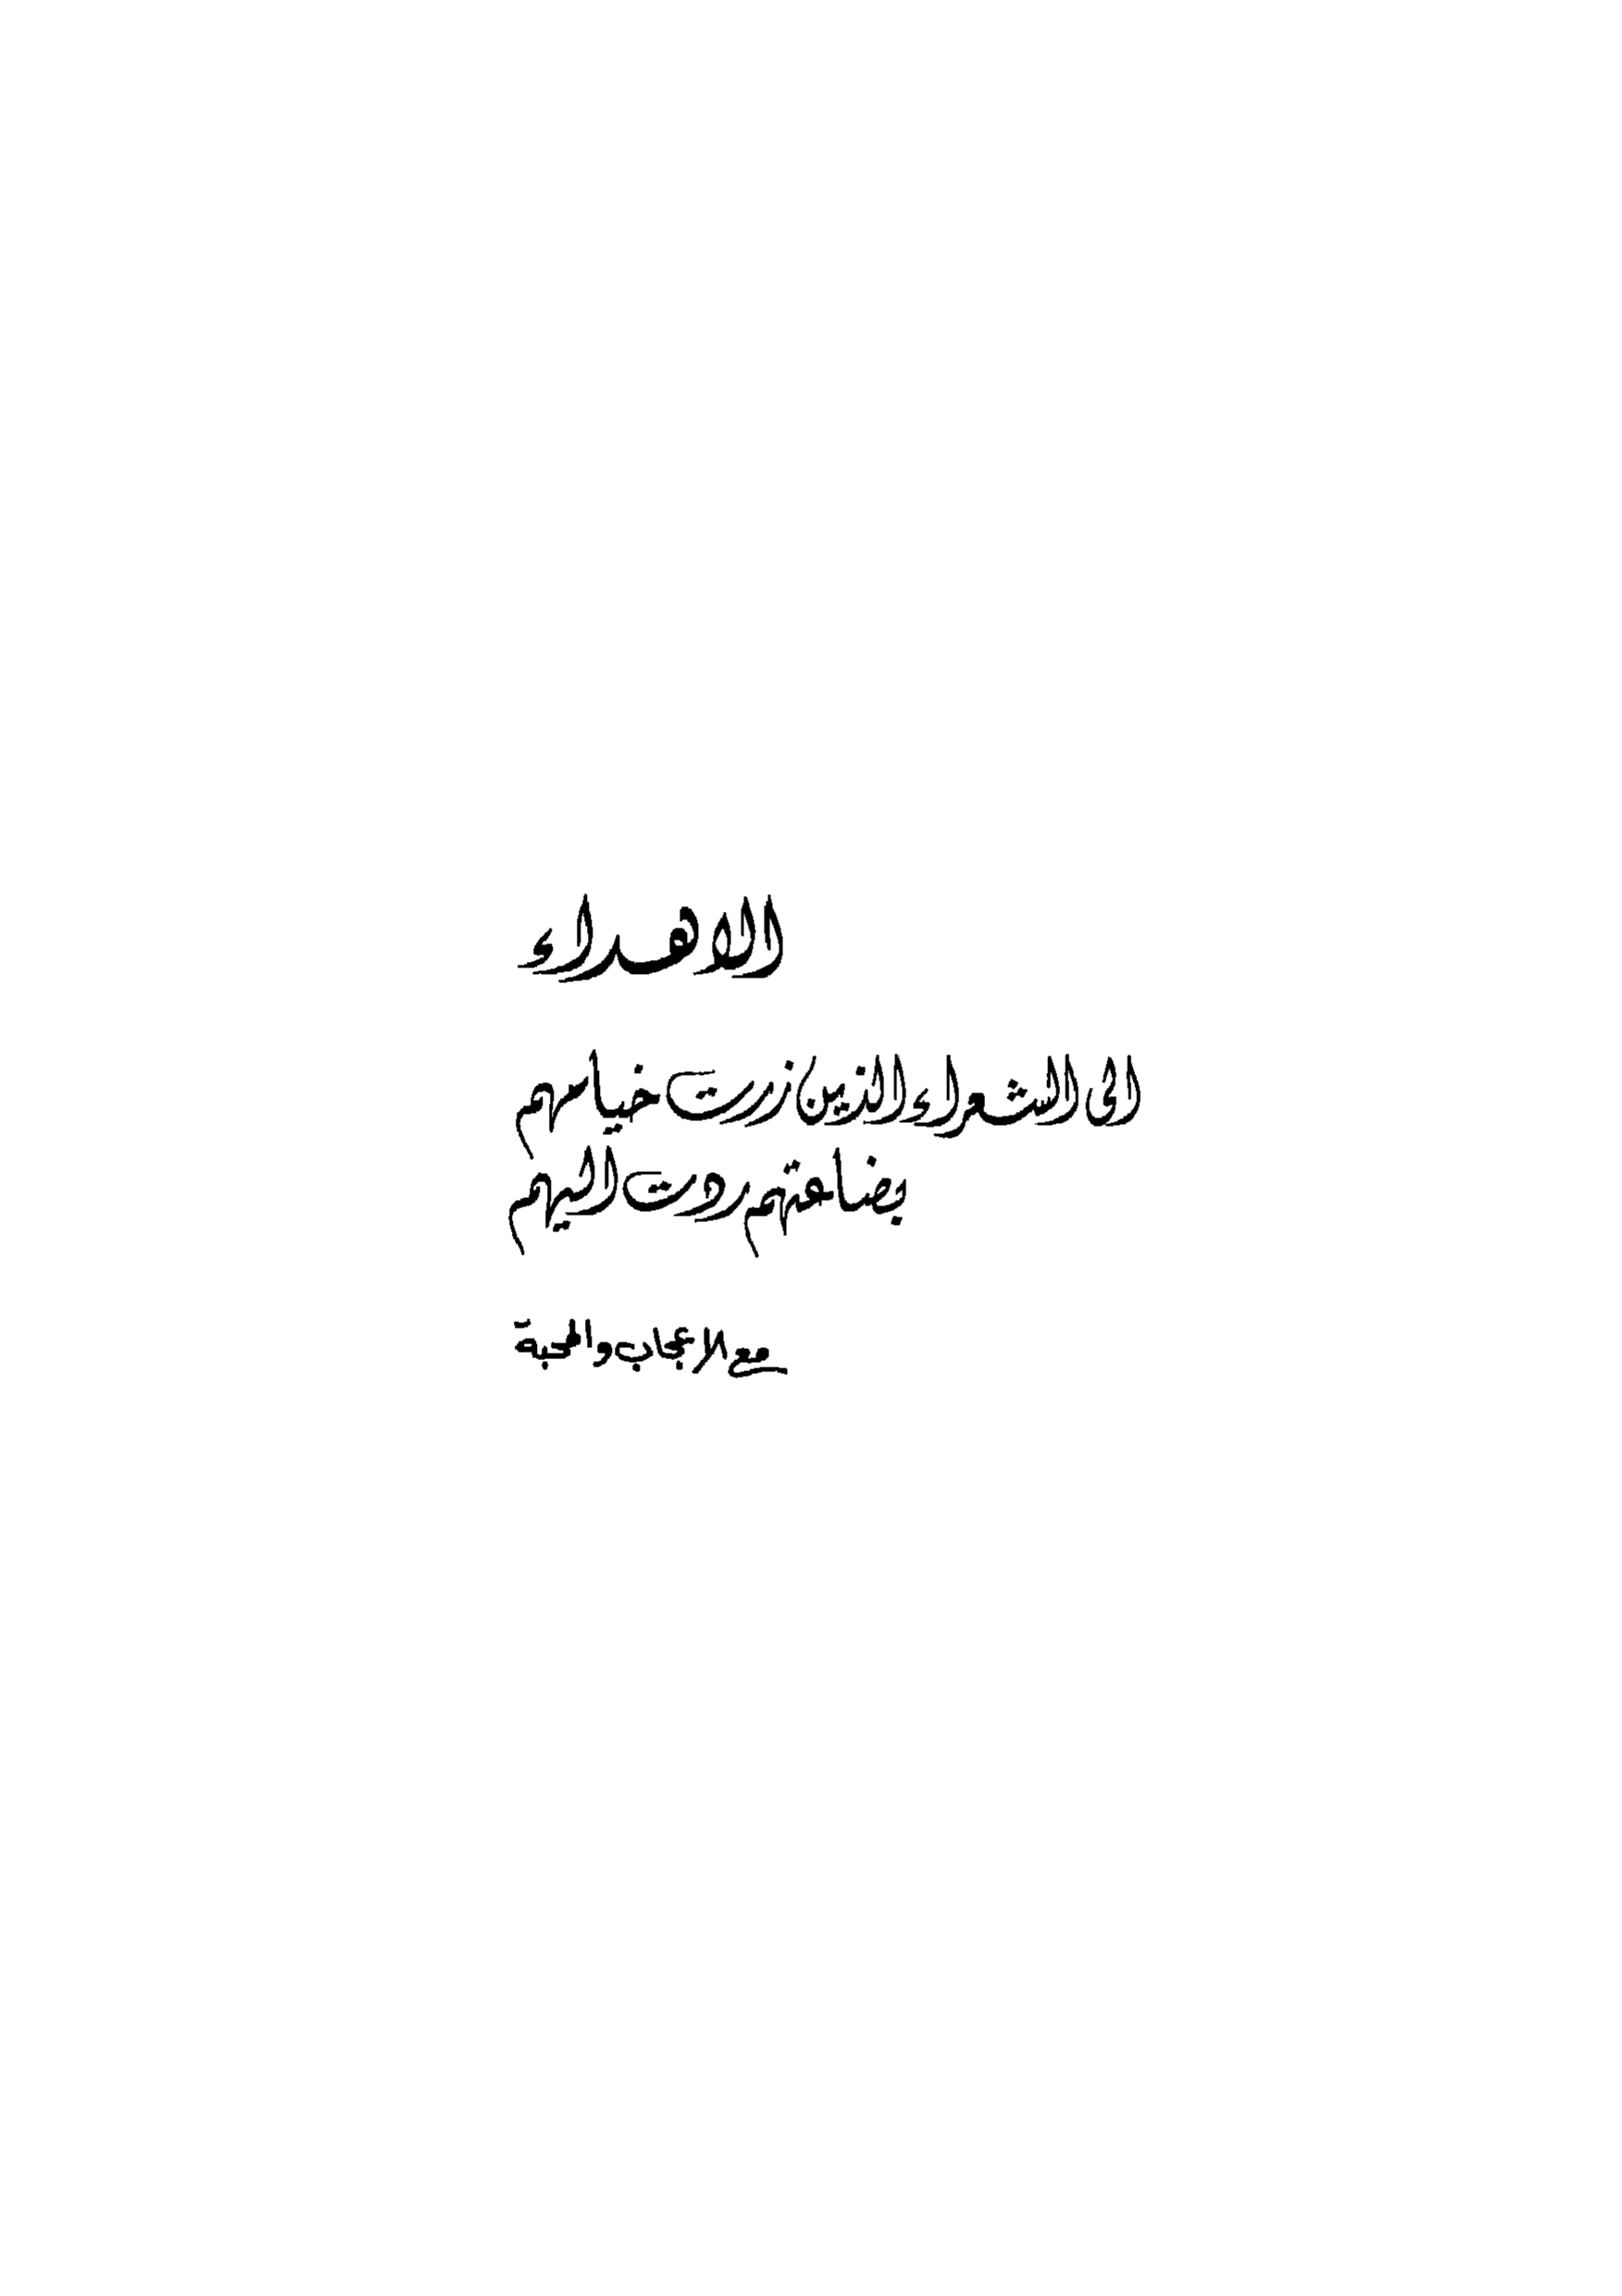 الاهداء
الى الشعراء الذين زرت خيامهم
بضاعتهم ردت اليهم
مع الاعجاب والمحبة